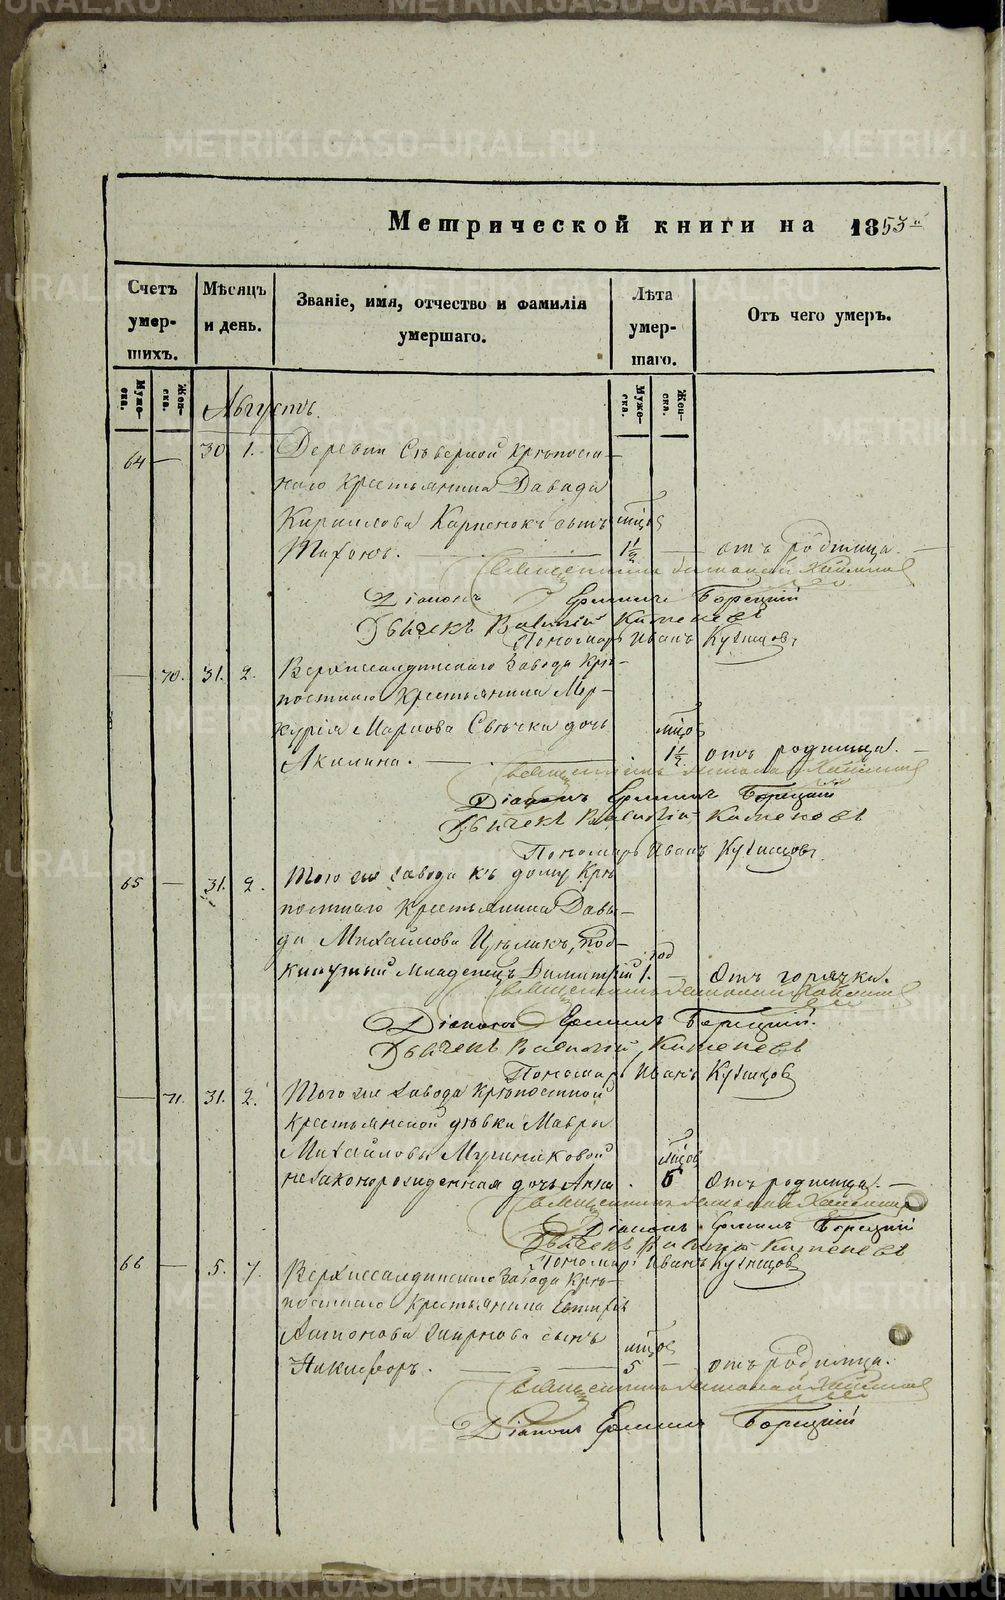 METRIKI.GASO-URAL.RU
Метрической книги на 1853й
Счетъ умер-шихъ.
Мѣсяцъ и день.
Званіе, имя, отчество и фамилія умершаго.
Лѣта умер-шаго.
Отъ чего умеръ.
Муже-ска.
Жен-ска.
Муже-ска.
Жен-ска.
Августъ.
64 — 30 1. Деревни Сѣверной крѣпост-
наго крестьянина Давида
Кирилова сынъ мцов
Тихонъ. 1½ — отъ родимца. —
Священникъ
Діаконъ Борецкій
Дьячекъ Василій
Пономарь Иванъ Кузнецовъ
— 70. 31. 2. Верхнесалдинскаго завода крѣ-
постнаго крестьянина Мер-
курія Маркова дочь мцов
Акилина. 1½ отъ родимца. —
Священникъ
Діаконъ Борецкій
Дьячекъ Василій
Пономарь Иванъ Кузнецовъ
65 — 31. 2. Того же завода къ дому крѣ-
постнаго крестьянина Давы-
да Михайлова под- год
кинутый младенецъ Димитрій 1. — Отъ горячки.
Священникъ
Діаконъ Борецкій.
Дьячекъ Василій
Пономарь Иванъ Кузнецовъ
— 71. 31. 2. Того же завода крѣпостной
крестьянской дѣвки Мавры
Михайловой мцов
незаконорожденная дочь Анна. 6 Отъ родимца. —
Священникъ
Діаконъ Борецкій
Дьячекъ Василій
Пономарь Иванъ Кузнецовъ
66 — 5. 7. Верхнесалдинскаго завода крѣ-
постнаго крестьянина
Антонова сынъ мцов
Никифоръ. 5 — отъ родимца.
Священникъ
Діаконъ Борецкій